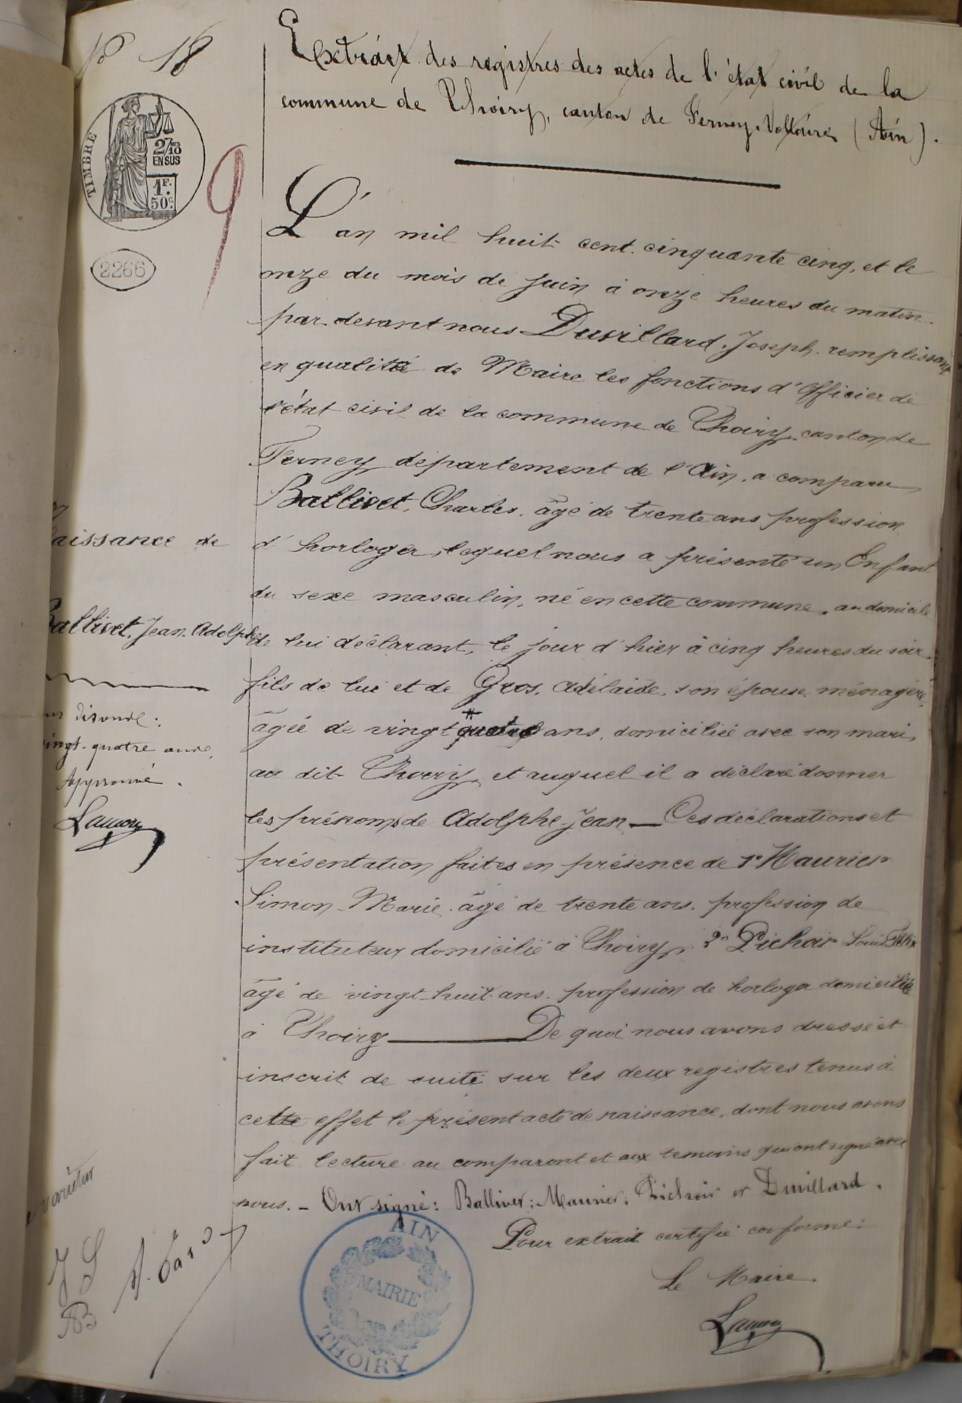 N° 18
Extrait des registres des actes de l'état civil de la
commune de Thoiry, canton de Ferney-Voltaire (Ain).
TIMBRE
2/10
EN SUS
1F.
50c.
9
2266
L'an mil huit cent cinquante cinq, et le
onze du mois de Juin à onze heures du matin
par devant nous Duvillard Joseph remplissant
en qualité de Maire les fonctions d'Officier de
l'état civil de la commune de Thoiry canton de
Ferney département de l'Ain, a comparu
Ballivet, Charles, âgé de trente ans profession
d'horloger, lequel nous a présenté un Enfant
du sexe masculin, né en cette commune, au domicile
de lui déclarant, le jour d'hier à cinq heures du soir
fils de lui et de Gros, Adélaïde, son épouse, ménagère,
âgée de vingt quatre ans, domiciliée avec son mari,
au dit Thoiry, et auquel il a déclaré donner
les prénoms de Adolphe Jean — Ces déclarations et
présentation faites en présence de 1° Maurier
Simon Marie âgé de trente ans, profession de
instituteur domicilié à Thoiry, 2° Pichoir Louis Félix
âgé de vingt-huit ans, profession de horloger domicilié
à Thoiry — De quoi nous avons dressé et
inscrit de suite sur les deux registres tenus à
cette effet le présent acte de naissance, dont nous avons
fait lecture au comparant et aux temoins qui ont signé avec
nous. - Ont signé: Ballivet: Maurier: Pichoir et Duvillard.
Pour extrait certifié conforme:
Le Maire
aissance de
Ballivet, Jean Adolphe
vingt-quatre ans.
Approuvé.
AIN
MAIRIE
THOIRY